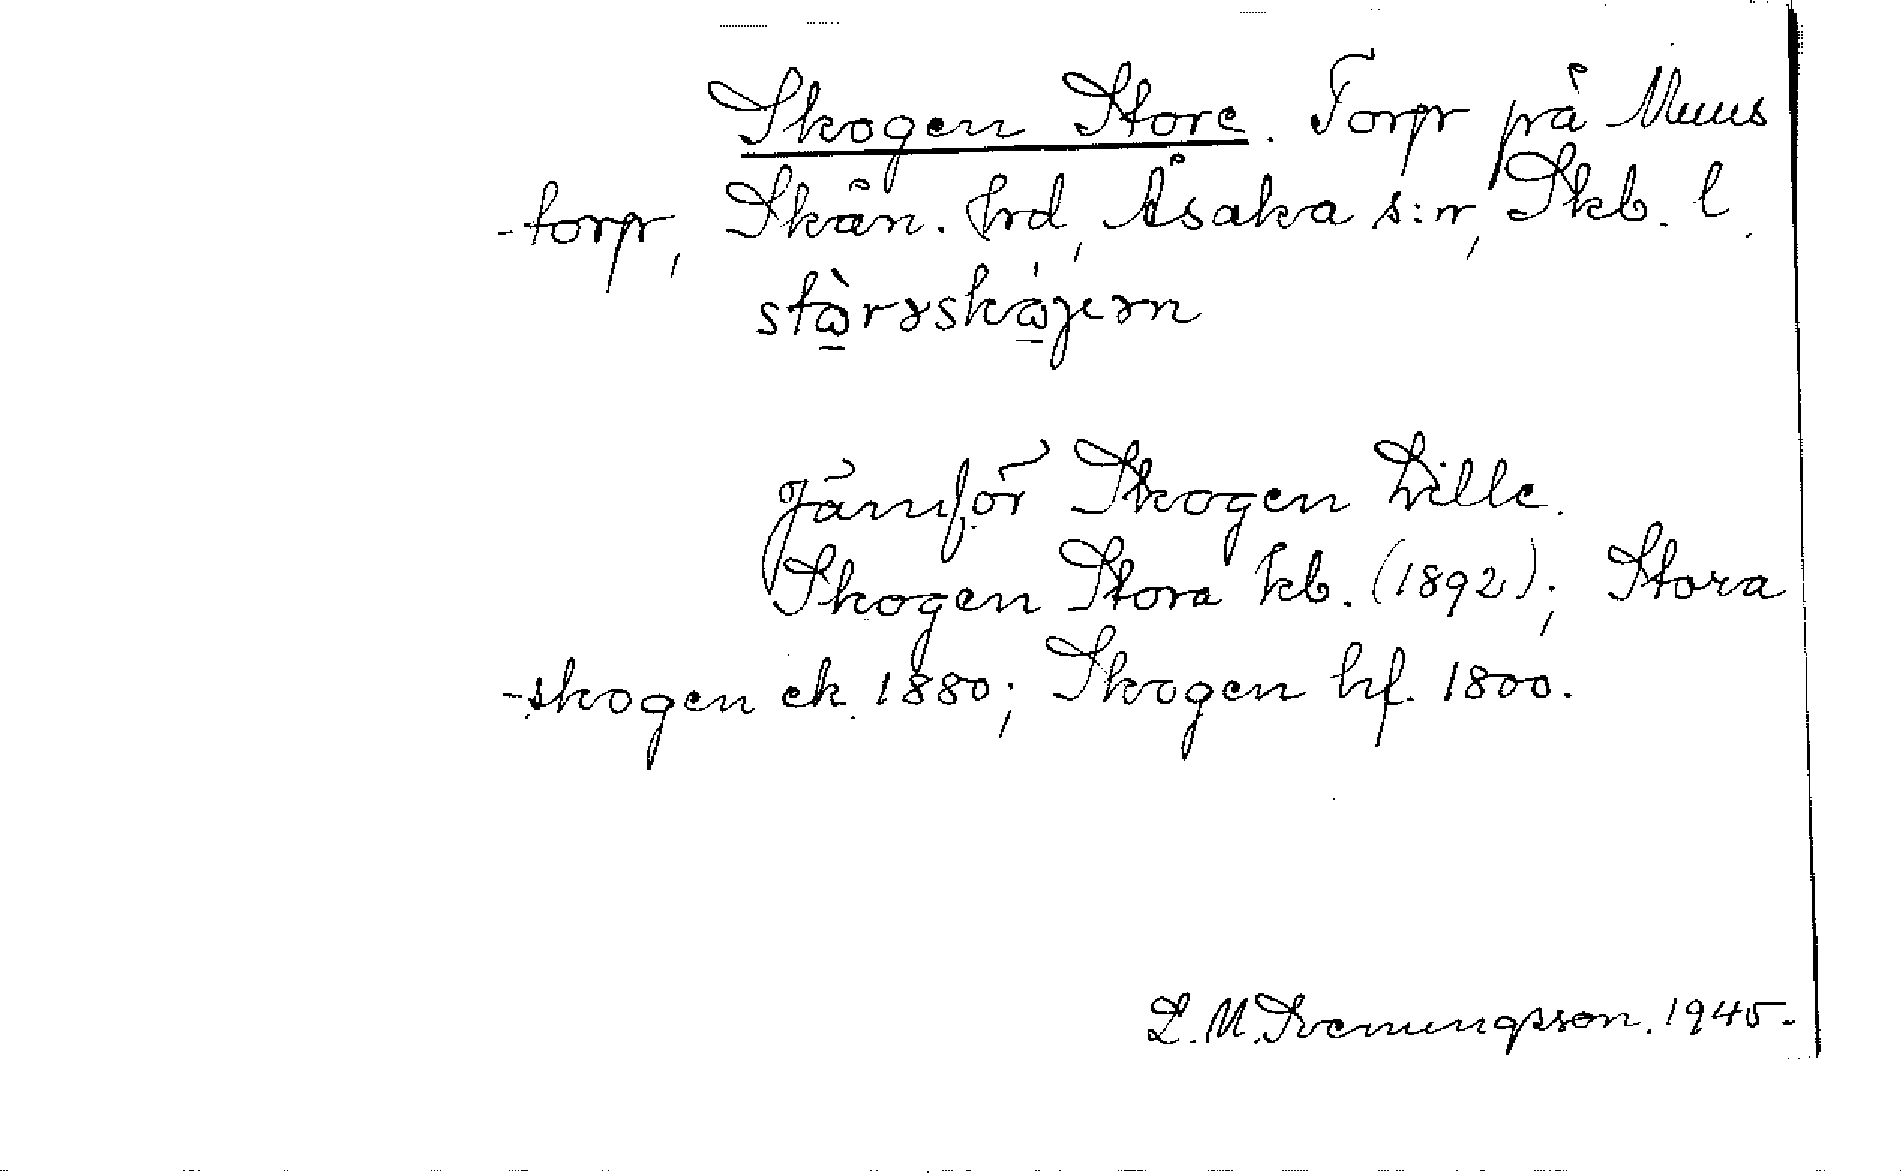 Skogen Store. Torp på Muus
-torp, Skån. hrd, Åsaka s:n, Skb. l.
stὼrəskώgen
Jämför Skogen Lille.
Skogen Stora kb. (1892); Stora
-skogen ek. 1880; Skogen hf. 1800.
L. M. Svenungsson. 1945.